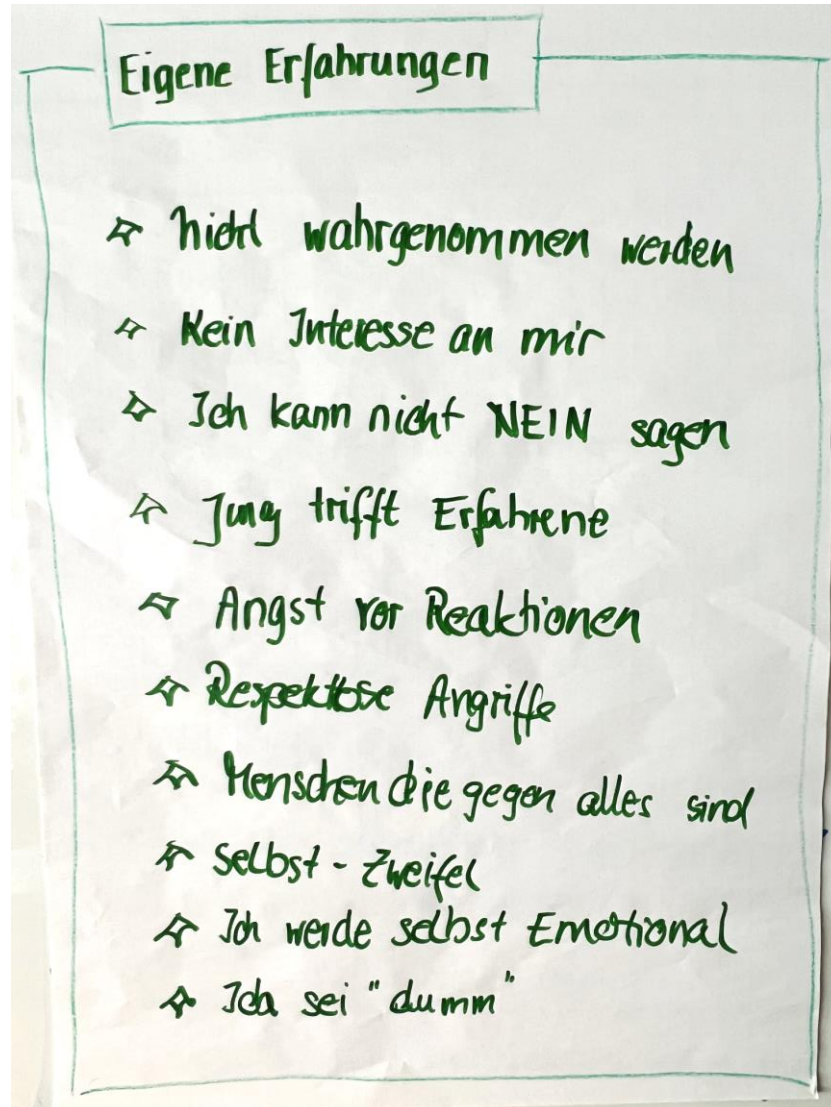 Eigene Erfahrungen
nicht wahrgenommen werden
Kein Interesse an mir
Ich kann nicht NEIN sagen
Jung trifft Erfahrene
Angst vor Reaktionen
Respektlose Angriffe
Menschen die gegen alles sind
Selbst - Zweifel
Ich werde selbst Emotional
Ich sei "dumm"